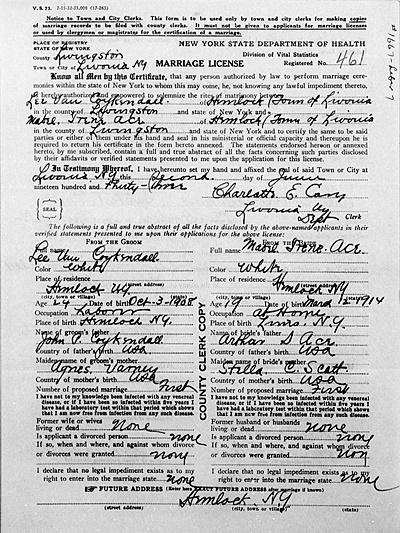 V. S. 23. 7-15-32-25,000 (17-263)
Notice to Town and City Clerks. This form is to be used only by town and city clerks for making copies
of marriage records to be filed with county clerks. It must not be given to applicants for marriage licenses
or used by clergymen or magistrates for the certification of a marriage.
PLACE OF REGISTRY
STATE OF NEW YORK
County of Livingston
Town or City of Livonia NY
NEW YORK STATE DEPARTMENT OF HEALTH
Division of Vital Statistics
MARRIAGE LICENSE
Registered No. 461
Know all Men by this Certificate, that any person authorized by law to perform marriage cere-
monies within the state of New York to whom this may come, he, not knowing any lawful impediment thereto,
is hereby authorized and empowered to solemnize the rites of matrimony between
Lee Van Coykendall of Hemlock Town of Livonia
in the county of Livingston and state of New York and
Mabel Irene Acr of Hemlock Town of Livonia
in the county of Livingston and state of New York and to certify the same to be said
parties or either of them under his hand and seal in his ministerial or official capacity and thereupon he is
required to return his certificate in the form hereto annexed. The statements endorsed hereon or annexed
hereto, by me subscribed, contain a full and true abstract of all the facts concerning such parties disclosed
by their affidavits or verified statements presented to me upon the application for this license.
In Testimony Whereof, I have hereunto set my hand and affixed the seal of said Town or City at
Livonia NY this Second day of June
nineteen hundred and Thirty-three
SEAL
Charlotte E. Cary
Livonia Ny
Clerk
The following is a full and true abstract of all the facts disclosed by the above-named applicants in their
verified statements presented to me upon their applications for the above license:
FROM THE GROOM
Full name Lee Van Coykendall
Color White
Place of residence
Hemlock Ny
(city, town or village) (state)
Age 24 Date of birth Oct-3-1908
Occupation Laborer
Place of birth Hemlock N.Y.
Name of groom's father
John P. Coykendall
Country of father's birth USA
Maiden name of groom's mother
Agnes Varney
Country of mother's birth USA
Number of proposed marriage First
I have not to my knowledge been infected with any venereal
disease, or if I have been so infected within five years I
have had a laboratory test within that period which shows
that I am now free from infection from any such disease.
Former wife or wives
living or dead None
Is applicant a divorced person none
If so, when and where, and against whom divorce
or divorces were granted none
I declare that no legal impediment exists as to my
right to enter into the marriage state none
COUNTY CLERK COPY
FROM THE BRIDE
Full name Mabel Irene Acr.
Color White
Place of residence
Hemlock NY
(city, town or village) (state)
Age 19 Date of birth March 12-1914
Occupation At Home
Place of birth Lima, N.Y.
Name of bride's father
Arthur S Acr
Country of father's birth USA
Maiden name of bride's mother
Stella C. Scott
Country of mother's birth USA
Number of proposed marriage First
I have not to my knowledge been infected with any venereal
disease, or if I have been so infected within five years I
have had a laboratory test within that period which shows
that I am now free from infection from any such disease.
Former husband or husbands
living or dead none
Is applicant a divorced person none
If so, when and where, and against whom divorce
or divorces were granted none
I declare that no legal impediment exists as to my
right to enter into the marriage state none
FUTURE ADDRESS (Enter here EXACT FUTURE ADDRESS after marriage if known)
Hemlock NY
(street address) (city, town or village) (state)